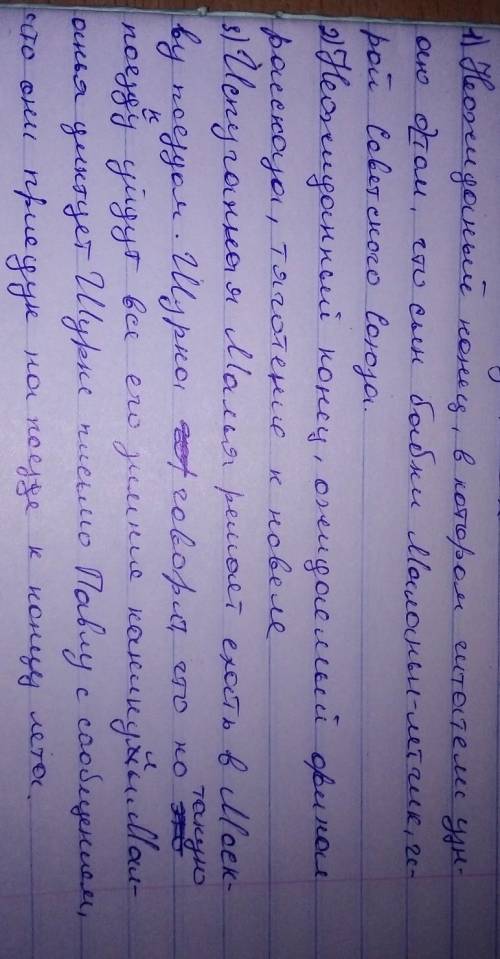 1) Неожиданый конец, в котором читатели узн-
аю отом, что сын бабки Маланьи-лётчик, ге-
рой Советского Союза.
2) Неожиданный конец, ожидаемый финал
рассказа, тяготение к новеле
3) Испуганная Маланья решает ехать в Моск-
ву поездом. Шурка говорит, что на такую
поезду к уйдут все его зимние каникулы и Мал-
анья диктует Шурке письмо Павлу с сообщением,
что они приедут на поезде к концу лета.